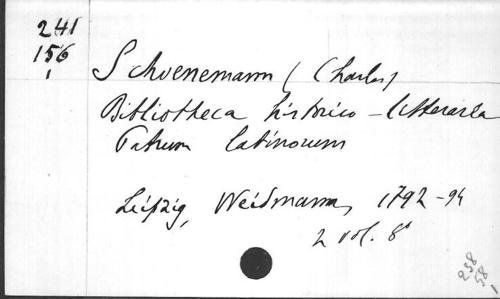 241
156
1
Schoenemann (Charles)
Bibliotheca historico-litteraria
Patrum latinorum
Leipzig, Weidmann, 1792-94
2 vol. 8°
238
58
1